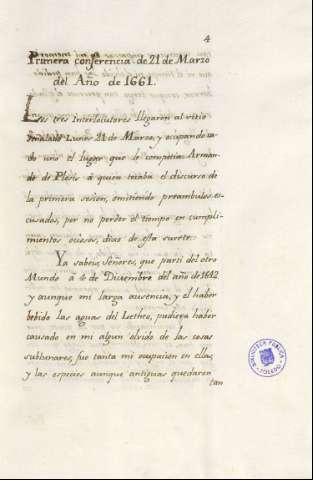 4
Primera conferencia de 21 de Marzo
del Año de 1661.
Los tres Interlocutores llegaron al sitio
señalado Lunes 21 de Marzo, y ocupando ca-
da uno el lugar que le competia Arman-
do de Plesis à quien tocaba el discurso de
la primera sesion, omitiendo preambulos es-
cusados, por no perder el tiempo en cumpli-
mientos ociosos, dixo de esta suerte.
Ya sabeis, Señores, que partì del otro
Mundo à 4 de Diciembre del año de 1642
y aunque mi larga ausencia, y el haber
bebido las aguas del Letheo, pudiera haber
causado en mi algun olvido de las cosas
sublunares, fue tanta mi ocupacion en ellas,
y las especies aunque antiguas quedaron
tan
BIBLIOTECA PUBLICA
TOLEDO